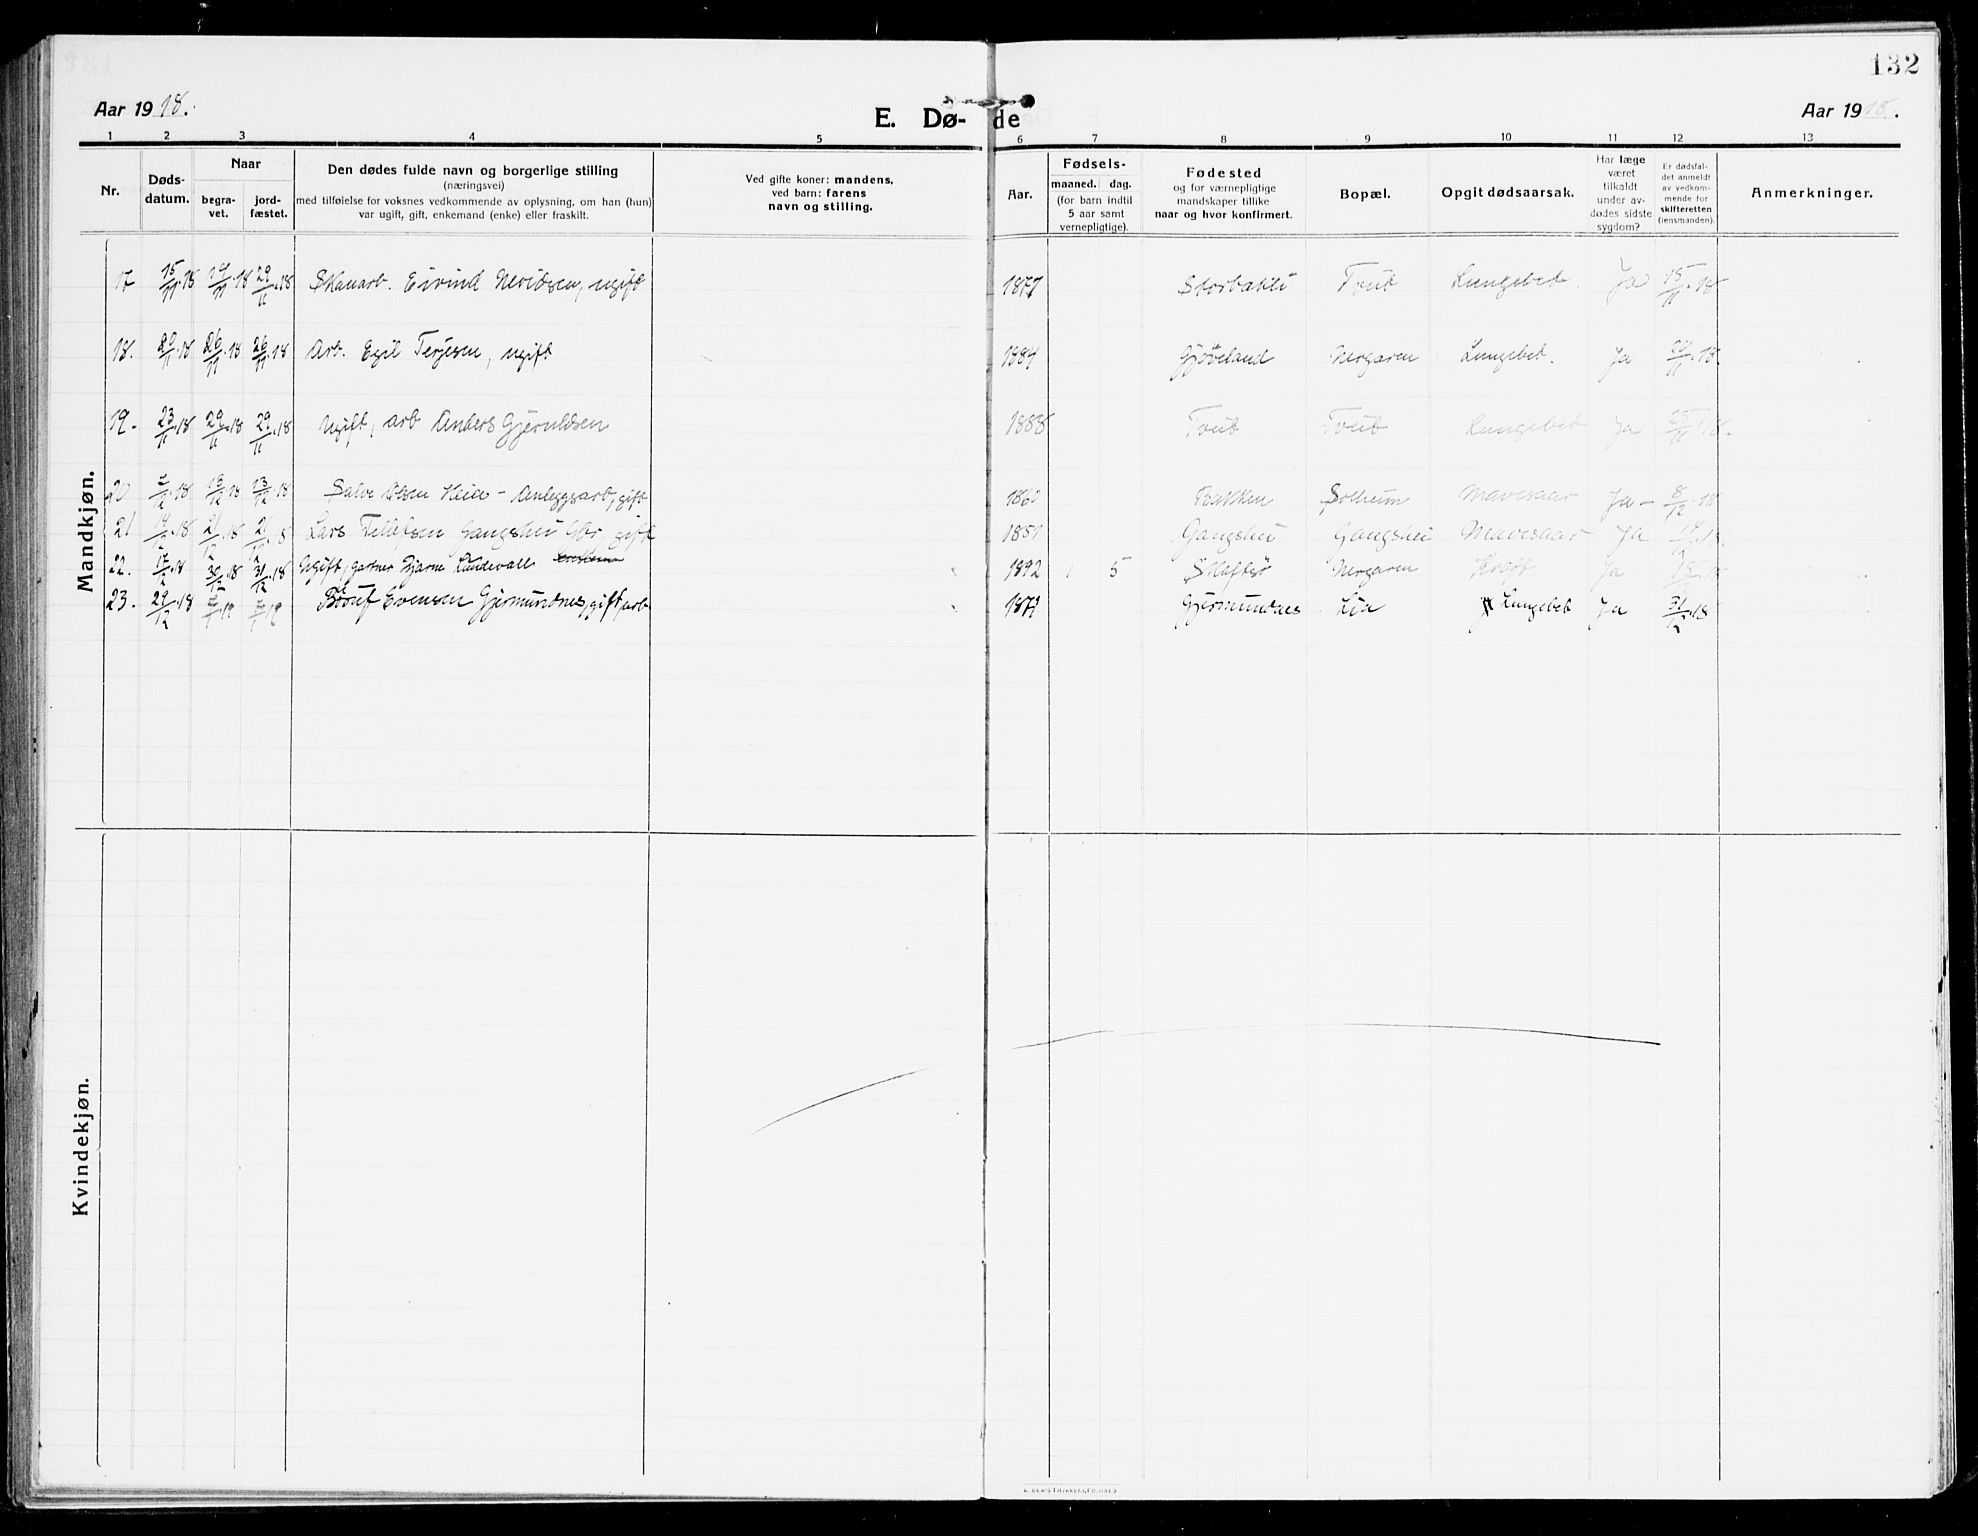 132
Aar 1918.
E. Dø- de
Aar 1918.
1 2 3 4 5 6 7 8 9 10 11 12 13
Nr.
Døds-
datum.
Naar
begra-
vet.
jord-
fæstet.
Den dødes fulde navn og borgerlige stilling
(næringsvei)
med tilføielse for voksnes vedkommende av oplysning, om han (hun)
var ugift, gift, enkemand (enke) eller fraskilt.
Ved gifte koner: mandens,
ved barn: farens
navn og stilling.
Aar.
Fødsels-
maaned. dag.
(for barn indtil
5 aar samt
vernepligtige).
Fødested
og for værnepligtige
mandskaper tillike
naar og hvor konfirmert.
Bopæl.
Opgit dødsaarsak.
Har læge
været
tilkaldt
under av-
dødes sidste
sygdom?
Er dødsfal-
det anmeldt
av vedkom-
mende for
skifteretten
(lensmanden).
Anmerkninger.
Mandkjøn.
17 15/11.18 19/11.18 29/11.18 Skauarb. Eivind Neridsen, ugift 1877 Storbakli Tveit Lungebet. Ja 15/11.18
18. 26/11.18 26/11.18 Arb. Egil Terjesen, ugift 1884 Gjøveland Nergaren Lungebet. Ja
19. 23/11.18 29/11.18 29/11.18 Ugift, arb Anders Gjeruldsen 1888 Tveit Tveit Lungebet Ja 25/11.18.
20 13/12.18 Salve Olsen Heie - Anleggsarb, gift 1860 Bakken Solheim Mavesaar Ja - 8/12.18
21 21/12.18 21/12.18 Lars Tellefsen Gangshei gift 1851 Gangshei Gangshei Mavesaar Ja
22. 17/12.18 30/12.18 31/12.18 Ugift, gartner Bjarne Lundevall 1892 1 5 Skaftsø Nergaren Kreft Ja 18/12.18
23. 29/12.18 Evensen Gjermundnes, gift, arb 1873 Gjermundnes Lia Lungebet Ja 31/12.18
Kvindekjøn.